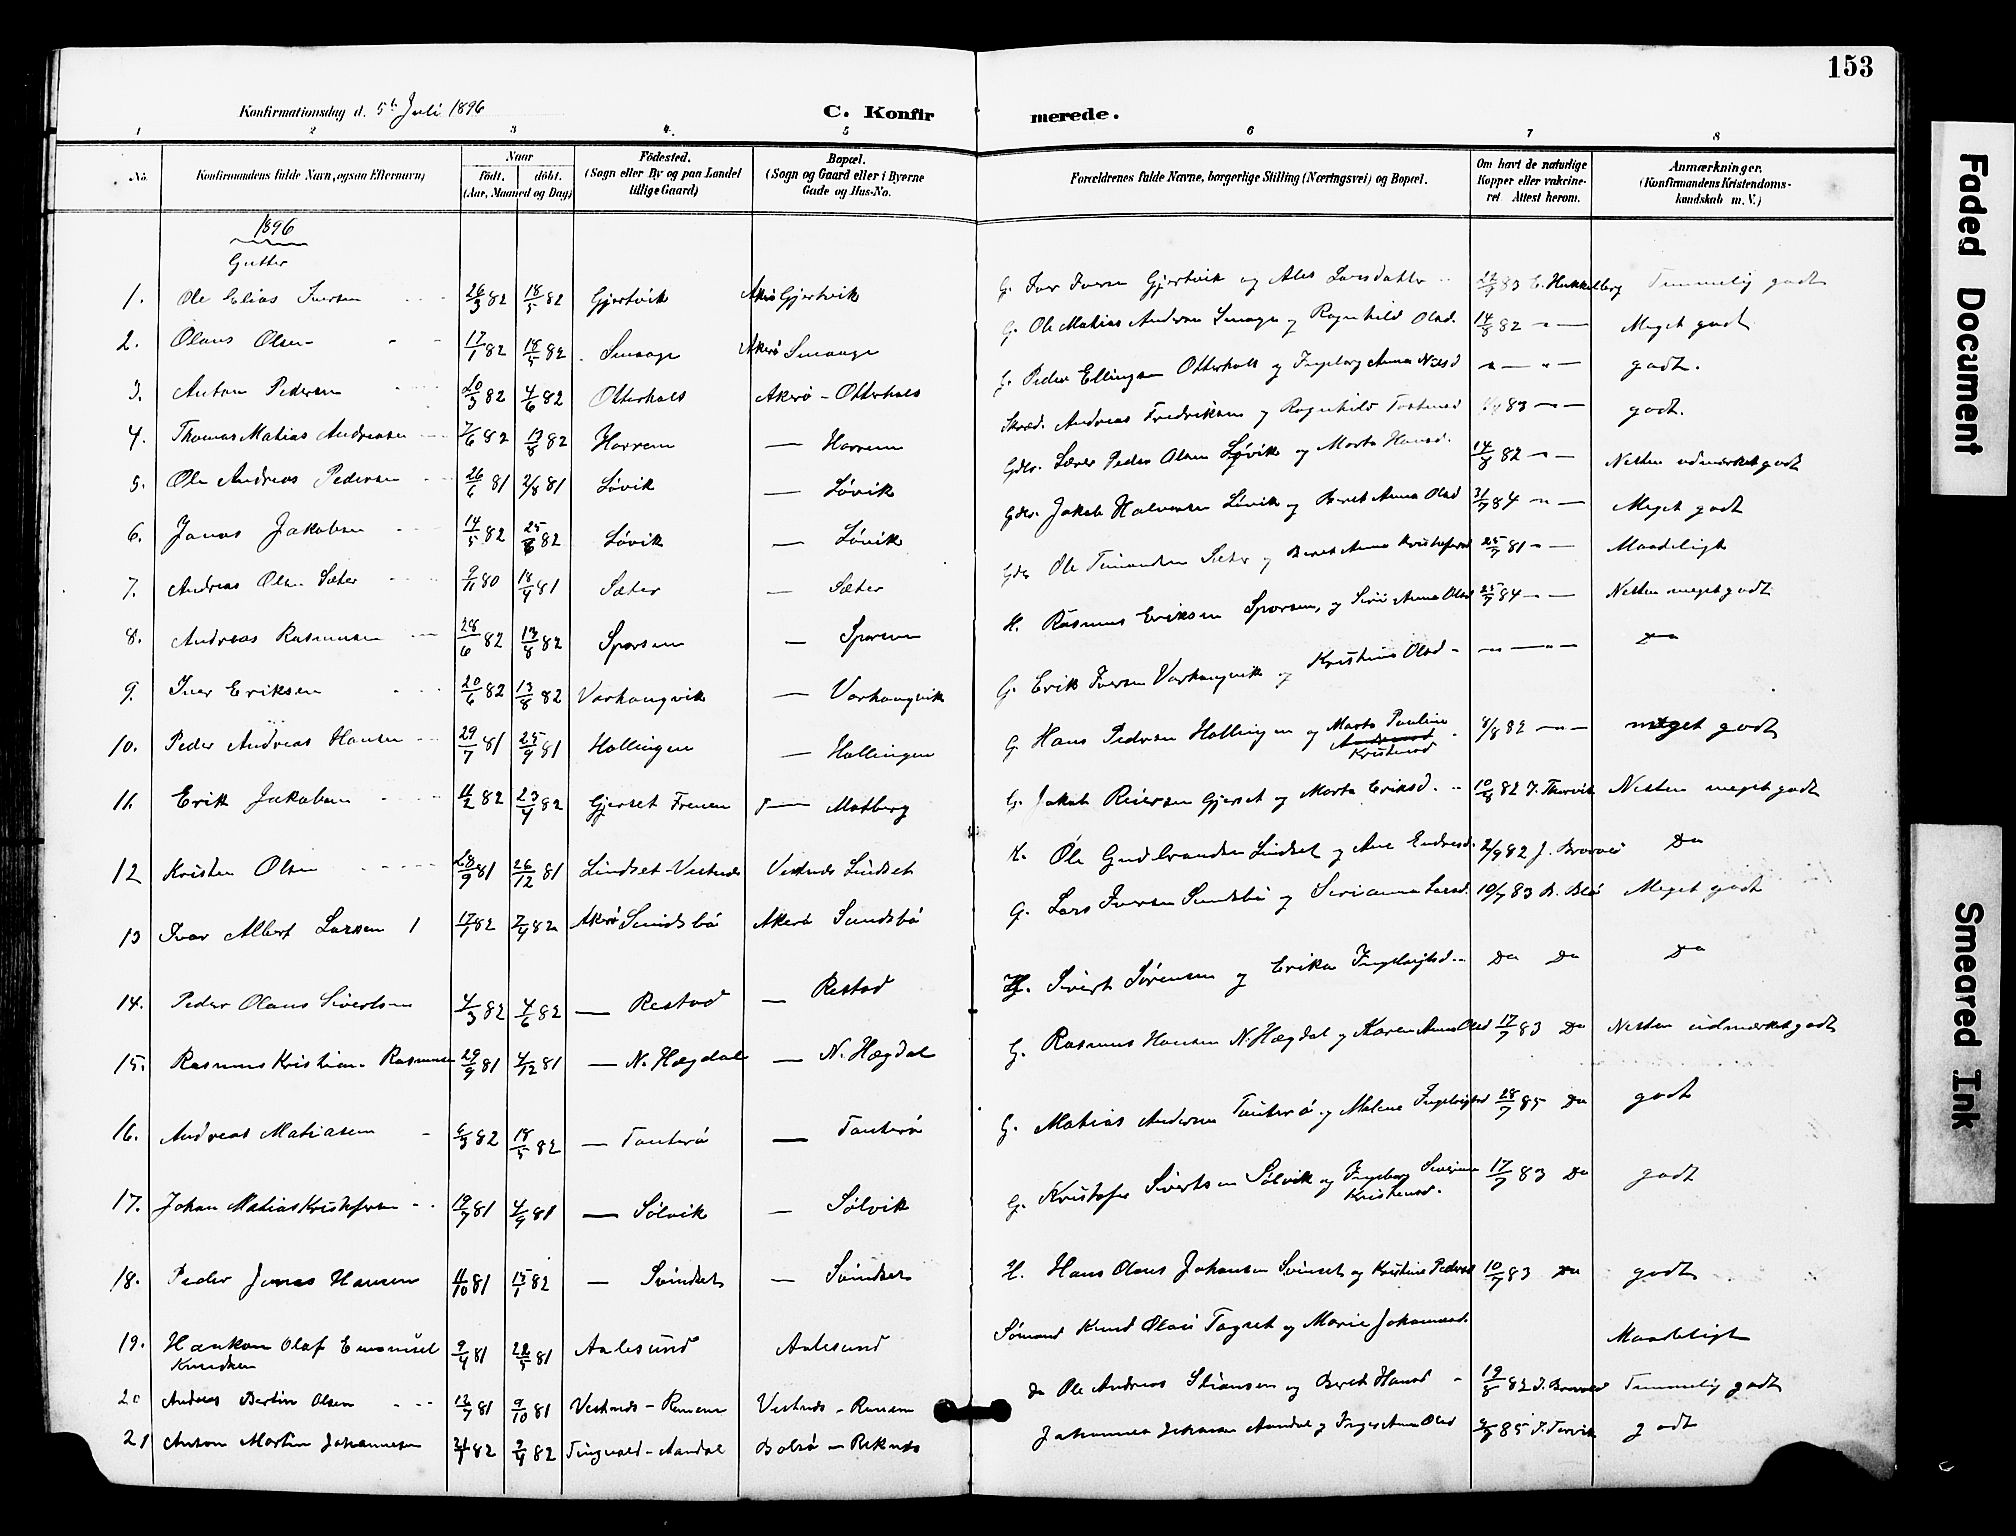 153
Konfirmationsdag d. 5te Juli 1896
C. Konfirmerede.
1 2 3 4. 5 6 7 8
No. Konfirmandens fulde Navn, ogsaa Efternavn) Naar Födt. döbt. (Aar, Maaned og Dag) Födested. (Sogn eller By og paa Landet tillige Gaard) Bopæl. (Sogn og Gaard eller i Byerne Gade og Hus-No. Forældrenes fulde Navne, borgerlige Stilling (Næringsvei) og Bopæl. Om havt de naturlige Kopper eller vakcineret Attest herom. Anmærkninger. (Konfirmandens Kristendomskundskab m. V.)
1896
Gutter
1. Ole Elias Iversen 26/3 82 18/5 82 Gjertvik Akerö Gjertvik G. Iver Iversen Gjertvik og Ales Larsdatter 83 Temmelig godt
2. Olaus Olsen 17/1 82 18/5 82 Smaage Akerö Smaage G. Ole Matias Andersen Smaage og Ragnhild Olsd. 14/8 82 Meget godt
3. Anton Pedersen 20/3 82 4/6 82 Otterhals Akerö - Otterhals G. Peder Ellingsen Otterhals og Ingeborg Anna Nilsd godt.
4. Thomas Matias Andreasen 7/6 82 13/8 82 Harrem — Harrem Skræd. Andreas Fredriksen og Ragnhild 83 godt.
5. Ole Andreas Pedersen 26/6 81 2/8 81 Løvik — Løvik Gdbr. Lærer Peder Olsen Løvik og Marta Hansd. 14/8 82 Nesten udmærket godt
6. Jonas Jakobsen 14/5 82 25/6 82 Løvik — Løvik Gdbr. Jakob Halvorsen Løvik og Beret Anna Olsd 31/7 84 Meget godt
7. Andreas Olsen Sæter 9/11 80 18/4 81 Sæter — Sæter Gdbr Ole Sæter og Beret Anna Kristofersd 25/7 81 Maadeligt
8. Andreas Rasmussen 28/6 82 13/8 82 Sporsem — Sporsem H. Rasmus Eriksen Sporsem, og Siri Anna Olsd 25/7 84 Nesten meget godt
9. Iver Eriksen 20/6 82 13/8 82 Varhaugvik — Varhaugvik G. Erik Iversen Varhaugvik og Kristine Olsd Do
10. Peder Andreas Hansen 29/7 81 25/9 81 Hallingen — Hallingen G. Hans Pedersen Hallingen og Marta Pauline Kristensd 8/8 82 meget godt
11. Erik Jakobsen 11/2 82 23/4 82 Gjerset Frenen — Malberg G. Jakob Reiersen Gjerset og Marta Eriksd. 10/8 82 Nesten meget godt
12 Kristen Olsen 28/9 81 26/12 81 Lindset-Vestnes Vestnes Lindset H. Ole Gudbrandsen Lindset og Ane Endresd. 2/9 82 Do
13 Ivar Albert Larsen 17/1 82 7/4 82 Akerö Sundsbö Akerö Sundsbö G. Lars Iversen Sundsbö og Serianna Larsd. 10/7 83 B. Blö Meget godt
14. Peder Olaus Sivertsen 4/3 82 4/6 82 — Restad — Restad H. Sivert Sørensen og Erika Ingebrigtsd Do Do Do
15. Rasmus Kristian Rasmussen 29/9 81 4/12 81 — N. Hægdal — N. Hægdal G. Rasmus Hansen N. Hægdal og Karen Anna Olsd 17/7 83 Do Nesten udmærket godt
16. Andreas Matiasen 6/3 82 18/5 82 — Tauterö — Tauterö G. Matias Andersen Tauterö og Malene Ingebrigtsd 28/7 85 Do godt
17. Johan Matias Kristofersen 19/7 81 4/9 81 — Sølvik — Sølvik G. Kristofer Sivertsen Sølvik og Ingeborg Kristensd. 17/7 83 Do godt
18. Peder Jonas Hansen 11/10 81 15/1 82 — Svindset — Svindset H. Hans Olaus Johansen Svinset og Kristine Pedersd 10/7 83 Do godt
19. Haakon Olaf Emanuel Knudsen 9/4 81 22/5 81 Aalesund Aalesund Sömand Knud Olai Tagset og Marie Johansen Maadeligt
20 Andreas Bertin Olsen 12/7 81 9/10 81 Vestnes - Remem Vestnes - Remem Do Ole Andreas Stiansen og Beret Hansd 19/8 82 Temmelig godt
21 Anton Martin Johannesen 82 9/4 82 Tingvold - Aandal Bolsö - Reknes Johannes Johnsen Aandal og Inger Anna Olsd 85 godt
Faded Document
Smeared Ink